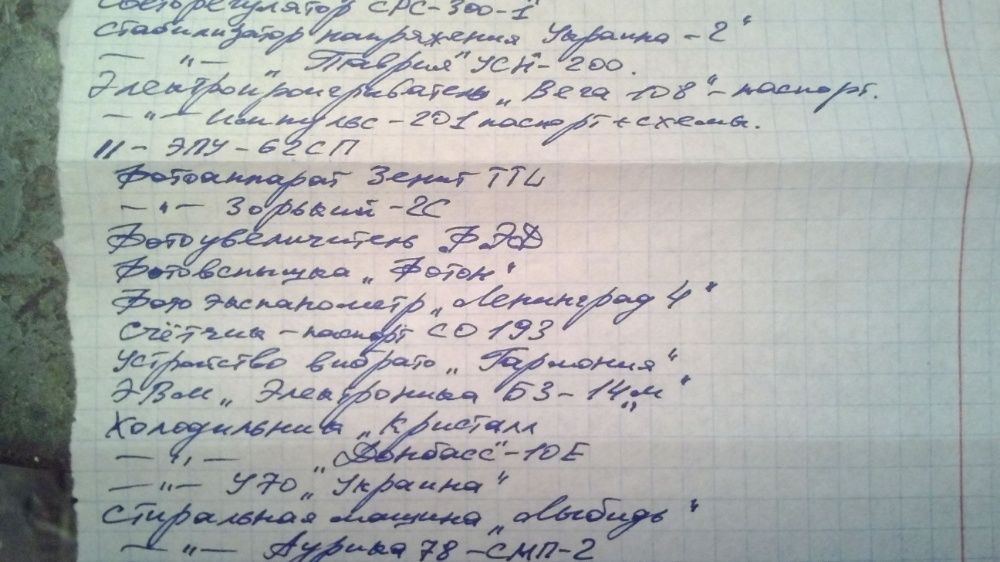 Светорегулятор СРС-300-1"
Стабилизатор напряжения Украина-2"
— "— „Таврия" УСН-200.
Электропроигрыватель „Вега 108"-паспорт.
— "— Импульс-201 паспорт+схемы.
"- ЭПУ-62СП
Фотоаппарат Зенит TTL
— "— Зоркий-2С
Фотоувеличитель ФЭД
Фотовспышка „Фотон"
Фото экспанометр „Ленинград 4"
Счётчик-паспорт СО 193
Устройство вибрато „Гармония"
ЭВМ „Электроника Б3-14м"
Холодильника „Кристалл"
— "— „Донбасс"-10Е
— "— У70 „Украина"
Стиральная машина „Лыбидь"
— "— Аурика 78-СМП-2